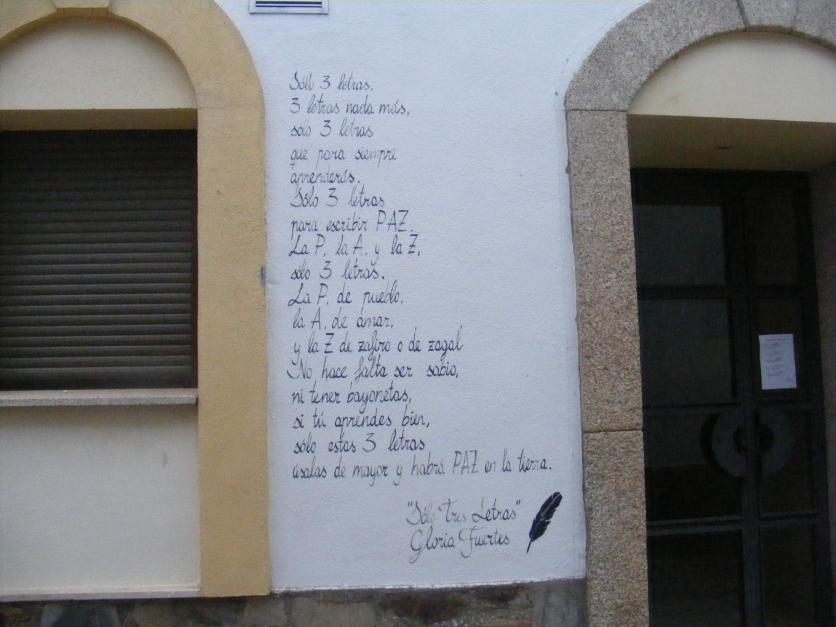 Sólo 3 letras,
3 letras nada más,
sólo 3 letras
que para siempre
aprenderás.
Sólo 3 letras
para escribir PAZ.
La P, la A, y la Z,
sólo 3 letras.
La P, de pueblo,
la A, de amar,
y la Z de zafiro o de zagal
No hace falta ser sabio,
ni tener bayonetas,
si tú aprendes bien,
sólo estas 3 letras
úsalas de mayor y habrá PAZ en la tierra.
"Sólo Tres Letras"
Gloria Fuertes